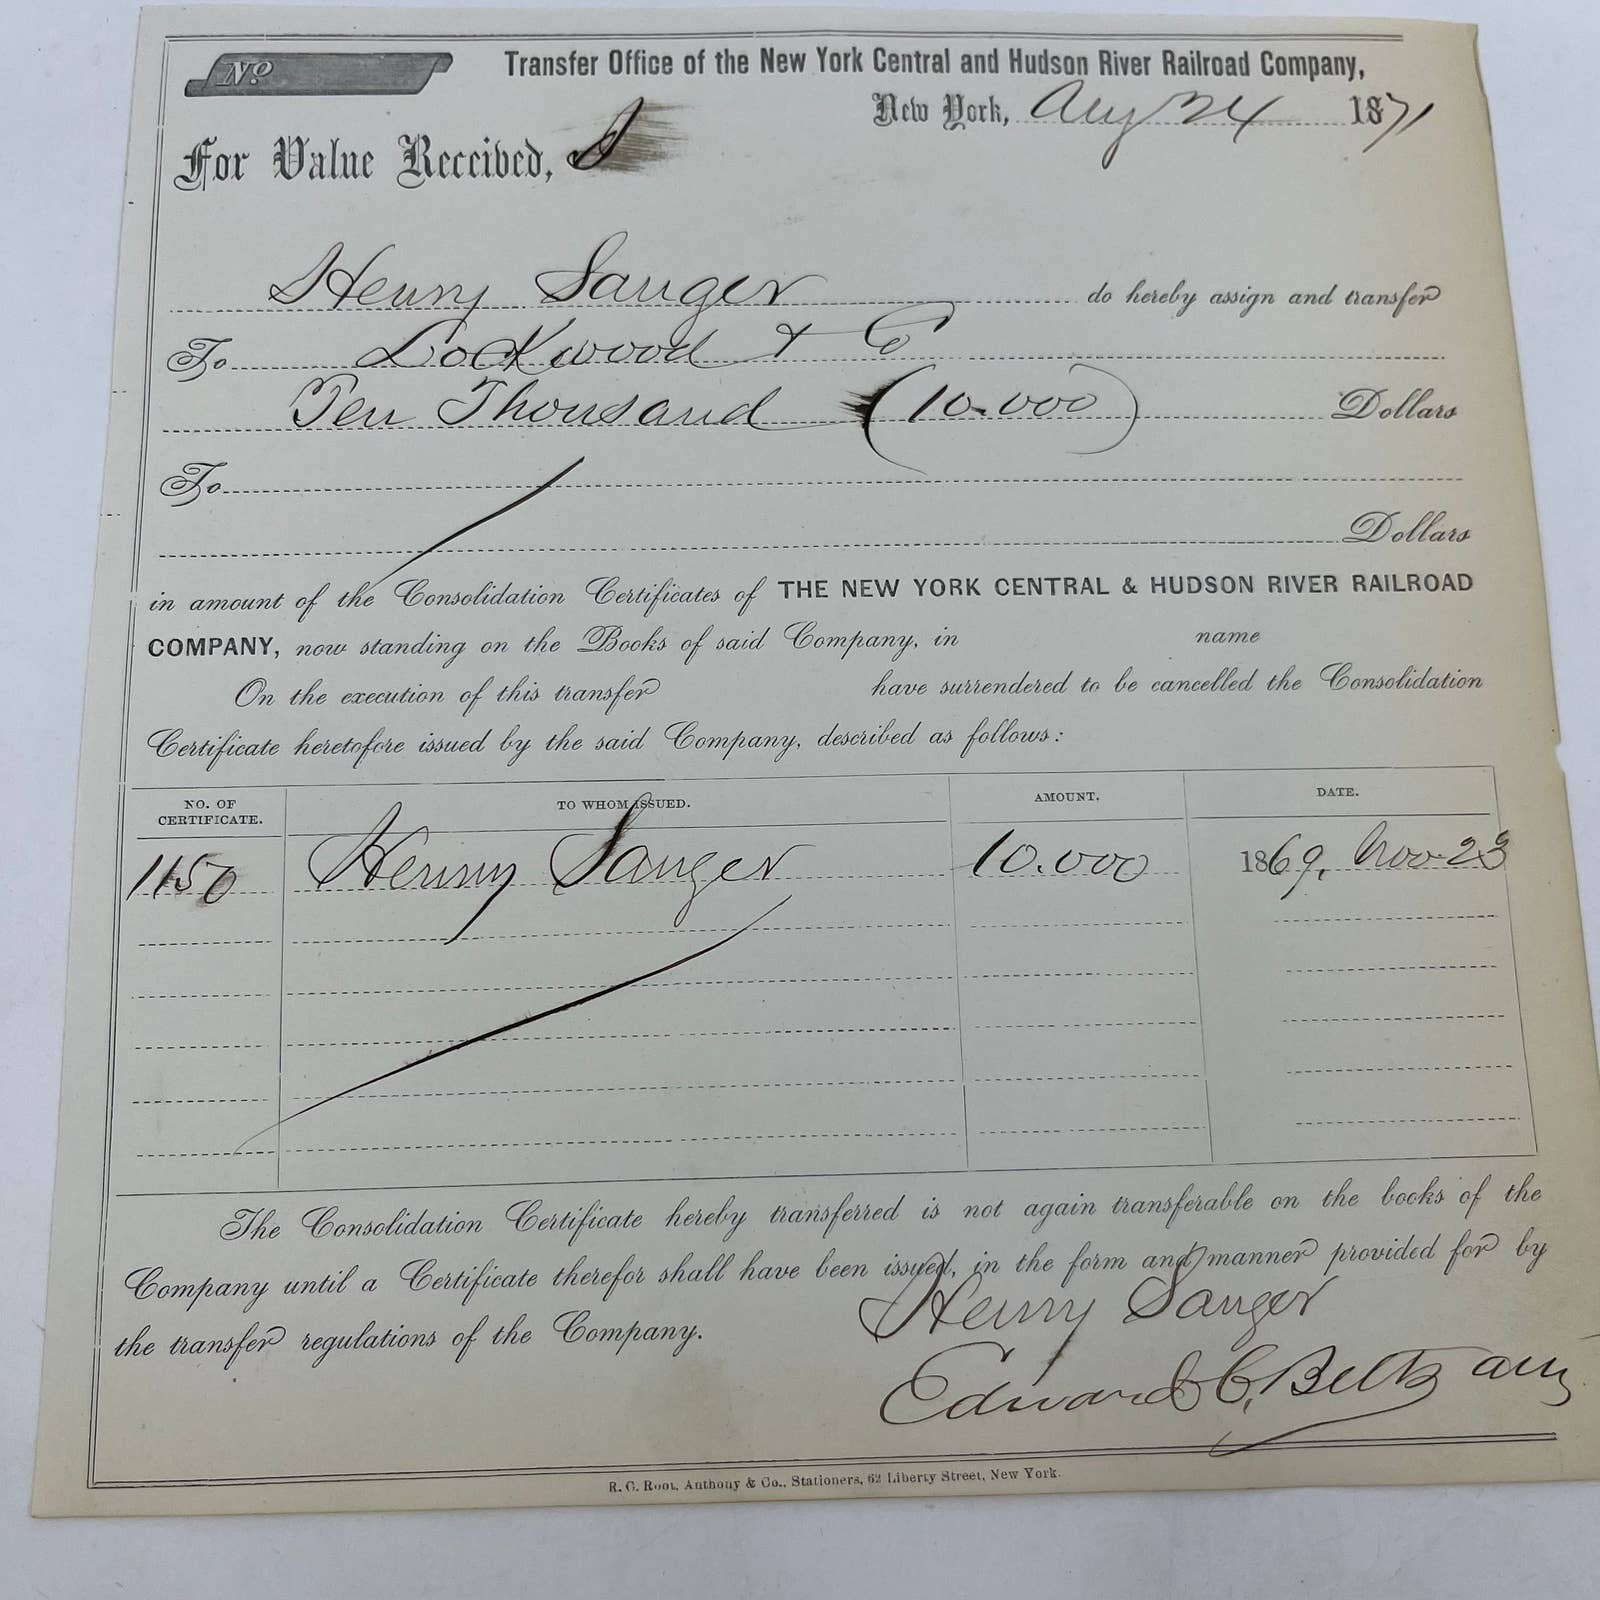 No
Transfer Office of the New York Central and Hudson River Railroad Company,
New York, Aug 24 1871
For Value Received, I
Henry Sanger do hereby assign and transfer
To Lockwood & Co
Ten Thousand (10.000) Dollars
To
Dollars
in amount of the Consolidation Certificates of THE NEW YORK CENTRAL & HUDSON RIVER RAILROAD
COMPANY, now standing on the Books of said Company, in name
On the execution of this transfer have surrendered to be cancelled the Consolidation
Certificate heretofore issued by the said Company, described as follows:
NO. OF CERTIFICATE. TO WHOM ISSUED. AMOUNT. DATE.
1150 Henry Sanger 10.000 1869, Nov 23
The Consolidation Certificate hereby transferred is not again transferable on the books of the
Company until a Certificate therefor shall have been issued, in the form and manner provided for by
the transfer regulations of the Company.
Henry Sanger
Edward C.
R. C. Root, Anthony & Co., Stationers, 62 Liberty Street, New York.